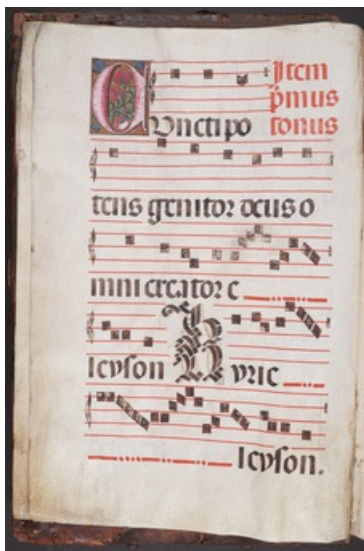 Item
p̄mus
tonus
Cunctipo
tens genitor deus o
mni creator e
leyson Kyrie
leyson.